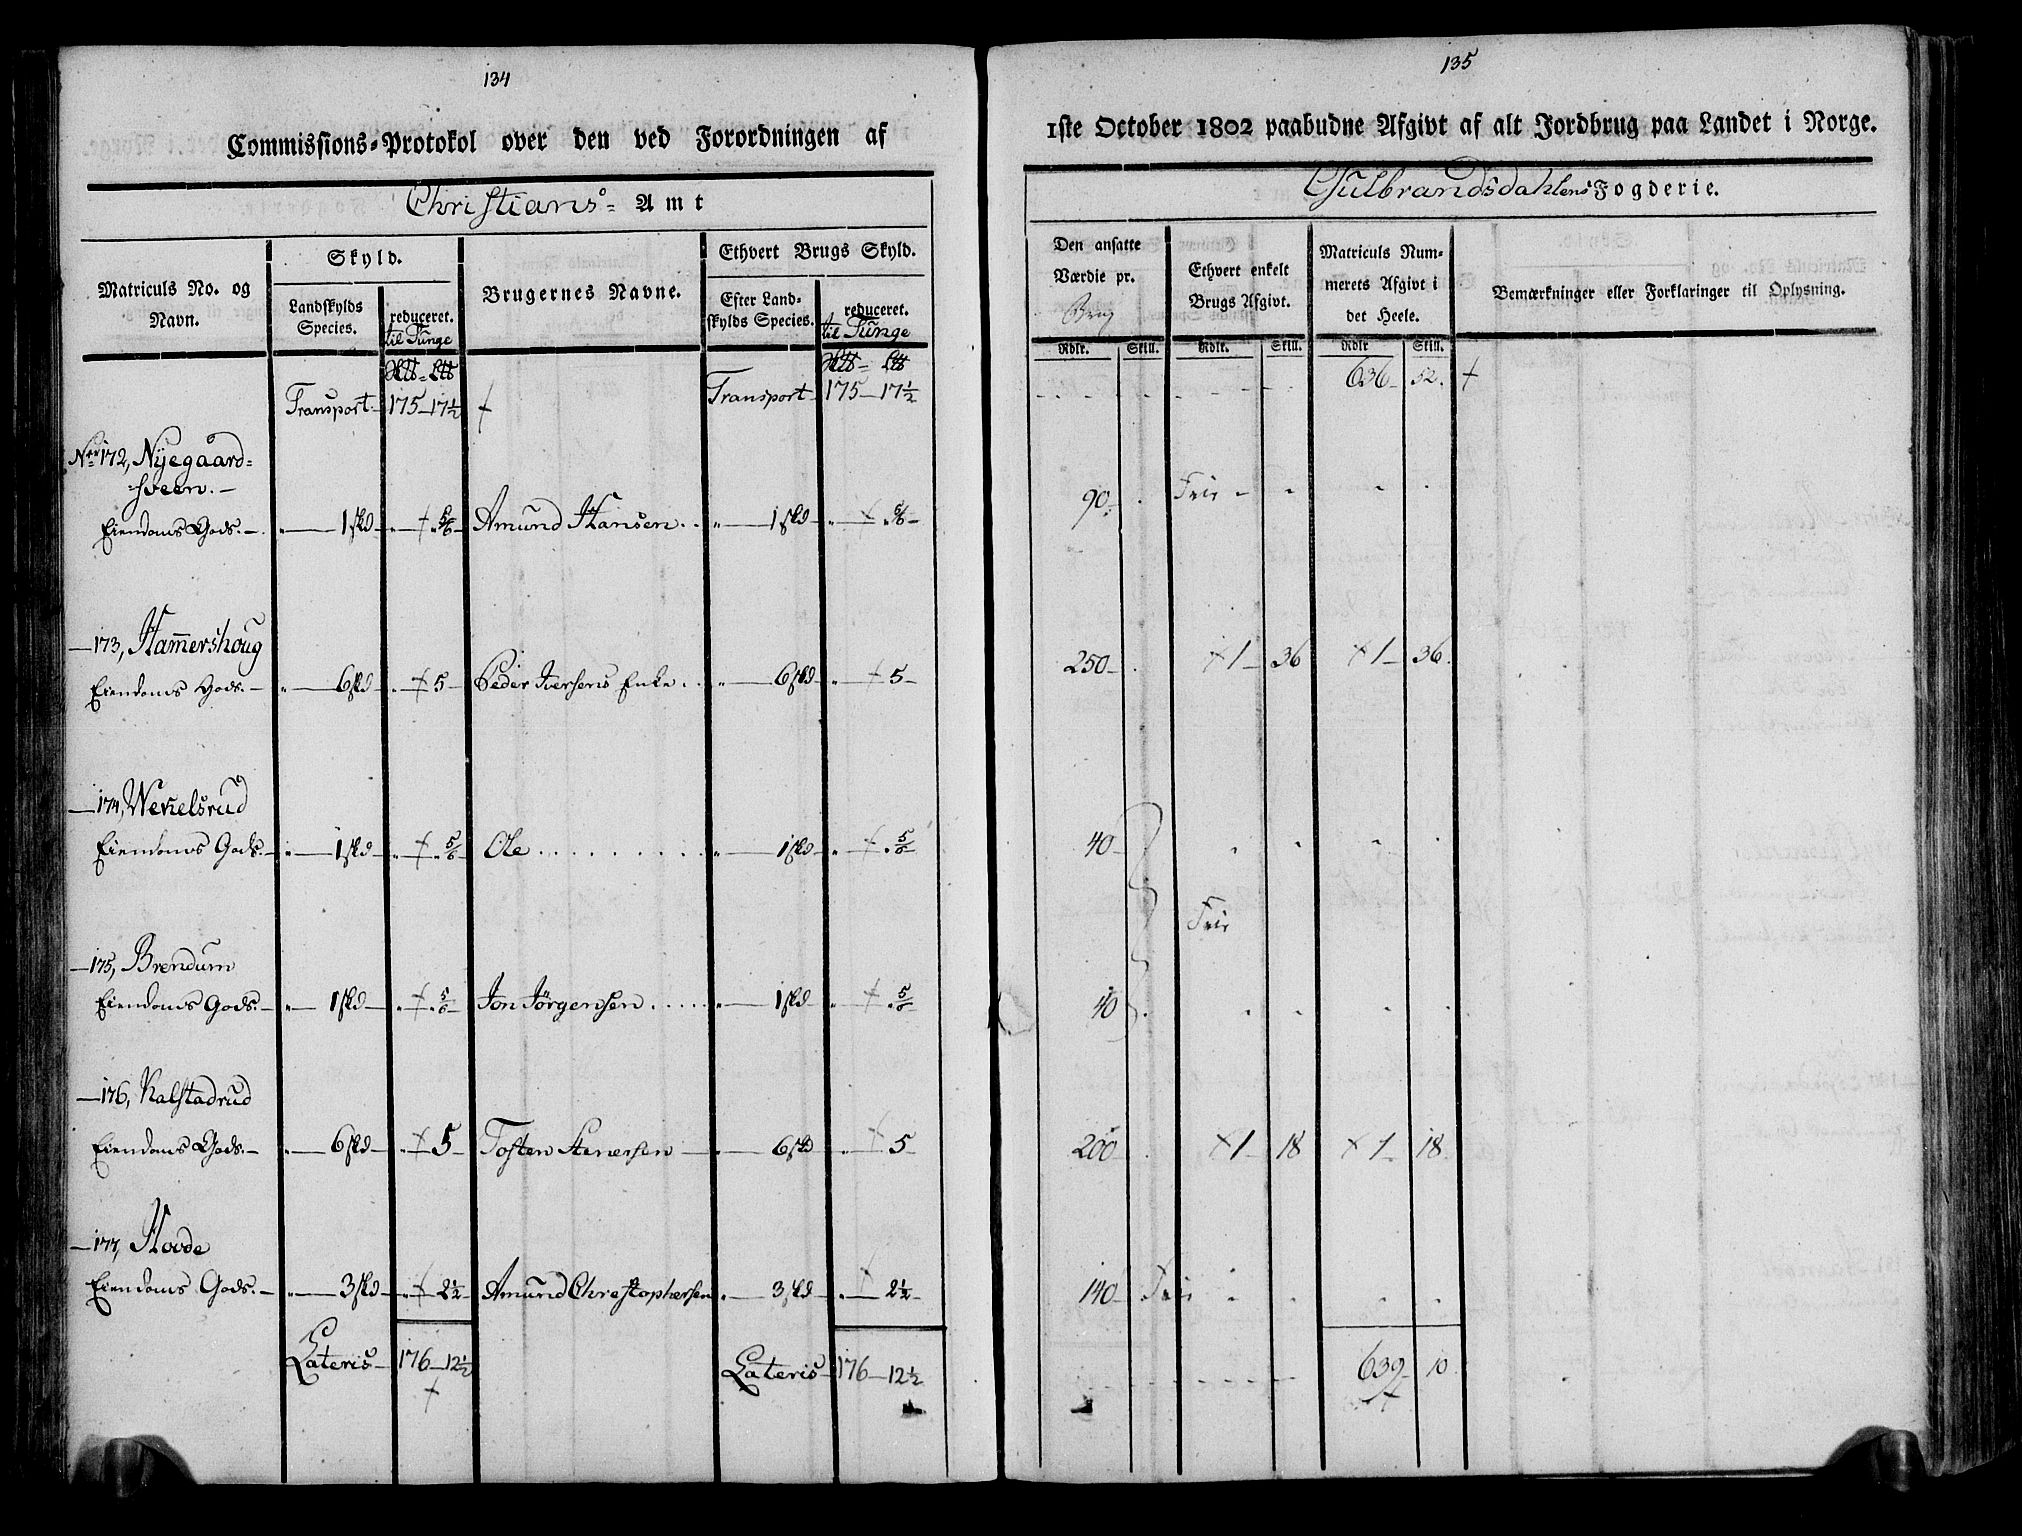 134
Commissions-Protokol over den ved Forordningen af
Christians- Amt
Matriculs No. og Navn.
Skyld.
Landskylds Species.
reduceret. til Tunge
Brugernes Navne.
Ethvert Brugs Skyld.
Efter Landskylds Species.
reduceret. til Tunge
Transport 175 17½ Transport 175 17½
No 172, Nyegaard-
sveen.
Eiendoms Gods. 1 skd 5/6 Amund Hansen 1 skd 5/6
173, Hammershoug
Eiendoms Gods. 6 skd 5 Peder Iversens Enke 6 skd 5
174, Wekelsrud
Eiendoms Gods. 1 skd 5/6 Ole 1 skd 5/6
175, Brendum
Eiendoms Gods. 1 skd 5/6 Jon Jørgensen 1 skd 5/6
176, Kalstadrud
Eiendoms Gods. 6 skd 5 Tosten Stenersen 6 skd 5
177, Hovde
Eiendoms Gods. 3 skd 2½ Amund Christophersen 3 skd 2½
Lateris 176 12½ Lateris 176 12½
135
1ste October 1802 paabudne Afgivt af alt Jordbrug paa Landet i Norge.
Gulbrandsdahlens Fogderie.
Den ansatte Værdie pr. Brug
Ethvert enkelt Brugs Afgivt.
Matriculs Nummerets Afgivt i det Heele.
Bemærkninger eller Forklaringer til Oplysning.
Rdlr. Skill. Rdlr. Skill. Rdlr Skill.
636 52
90 Frie
250 1 36 1 36
40
Frie
40
200 1 18 1 18
140 Frie
639 10